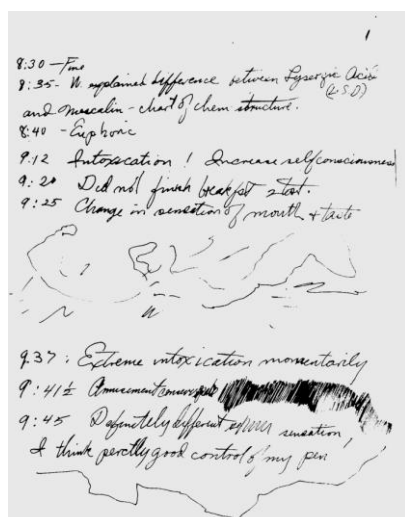 1
8:30 - Fine
8:35 - W. explained difference between Lysergic Acid
(L.S.D)
and mascalin - chart of chem structure.
8:40 - Euphoric
9:12 Intoxication ! Increase selfconsciousness
9:20 Did not finish breakfst toast.
9:25 Change in sensation of mouth + taste
9.37 : Extreme intoxication momentarily
9:41½ Amusement
9:45 Definitely different sensation,
I think perctly good control of my pen